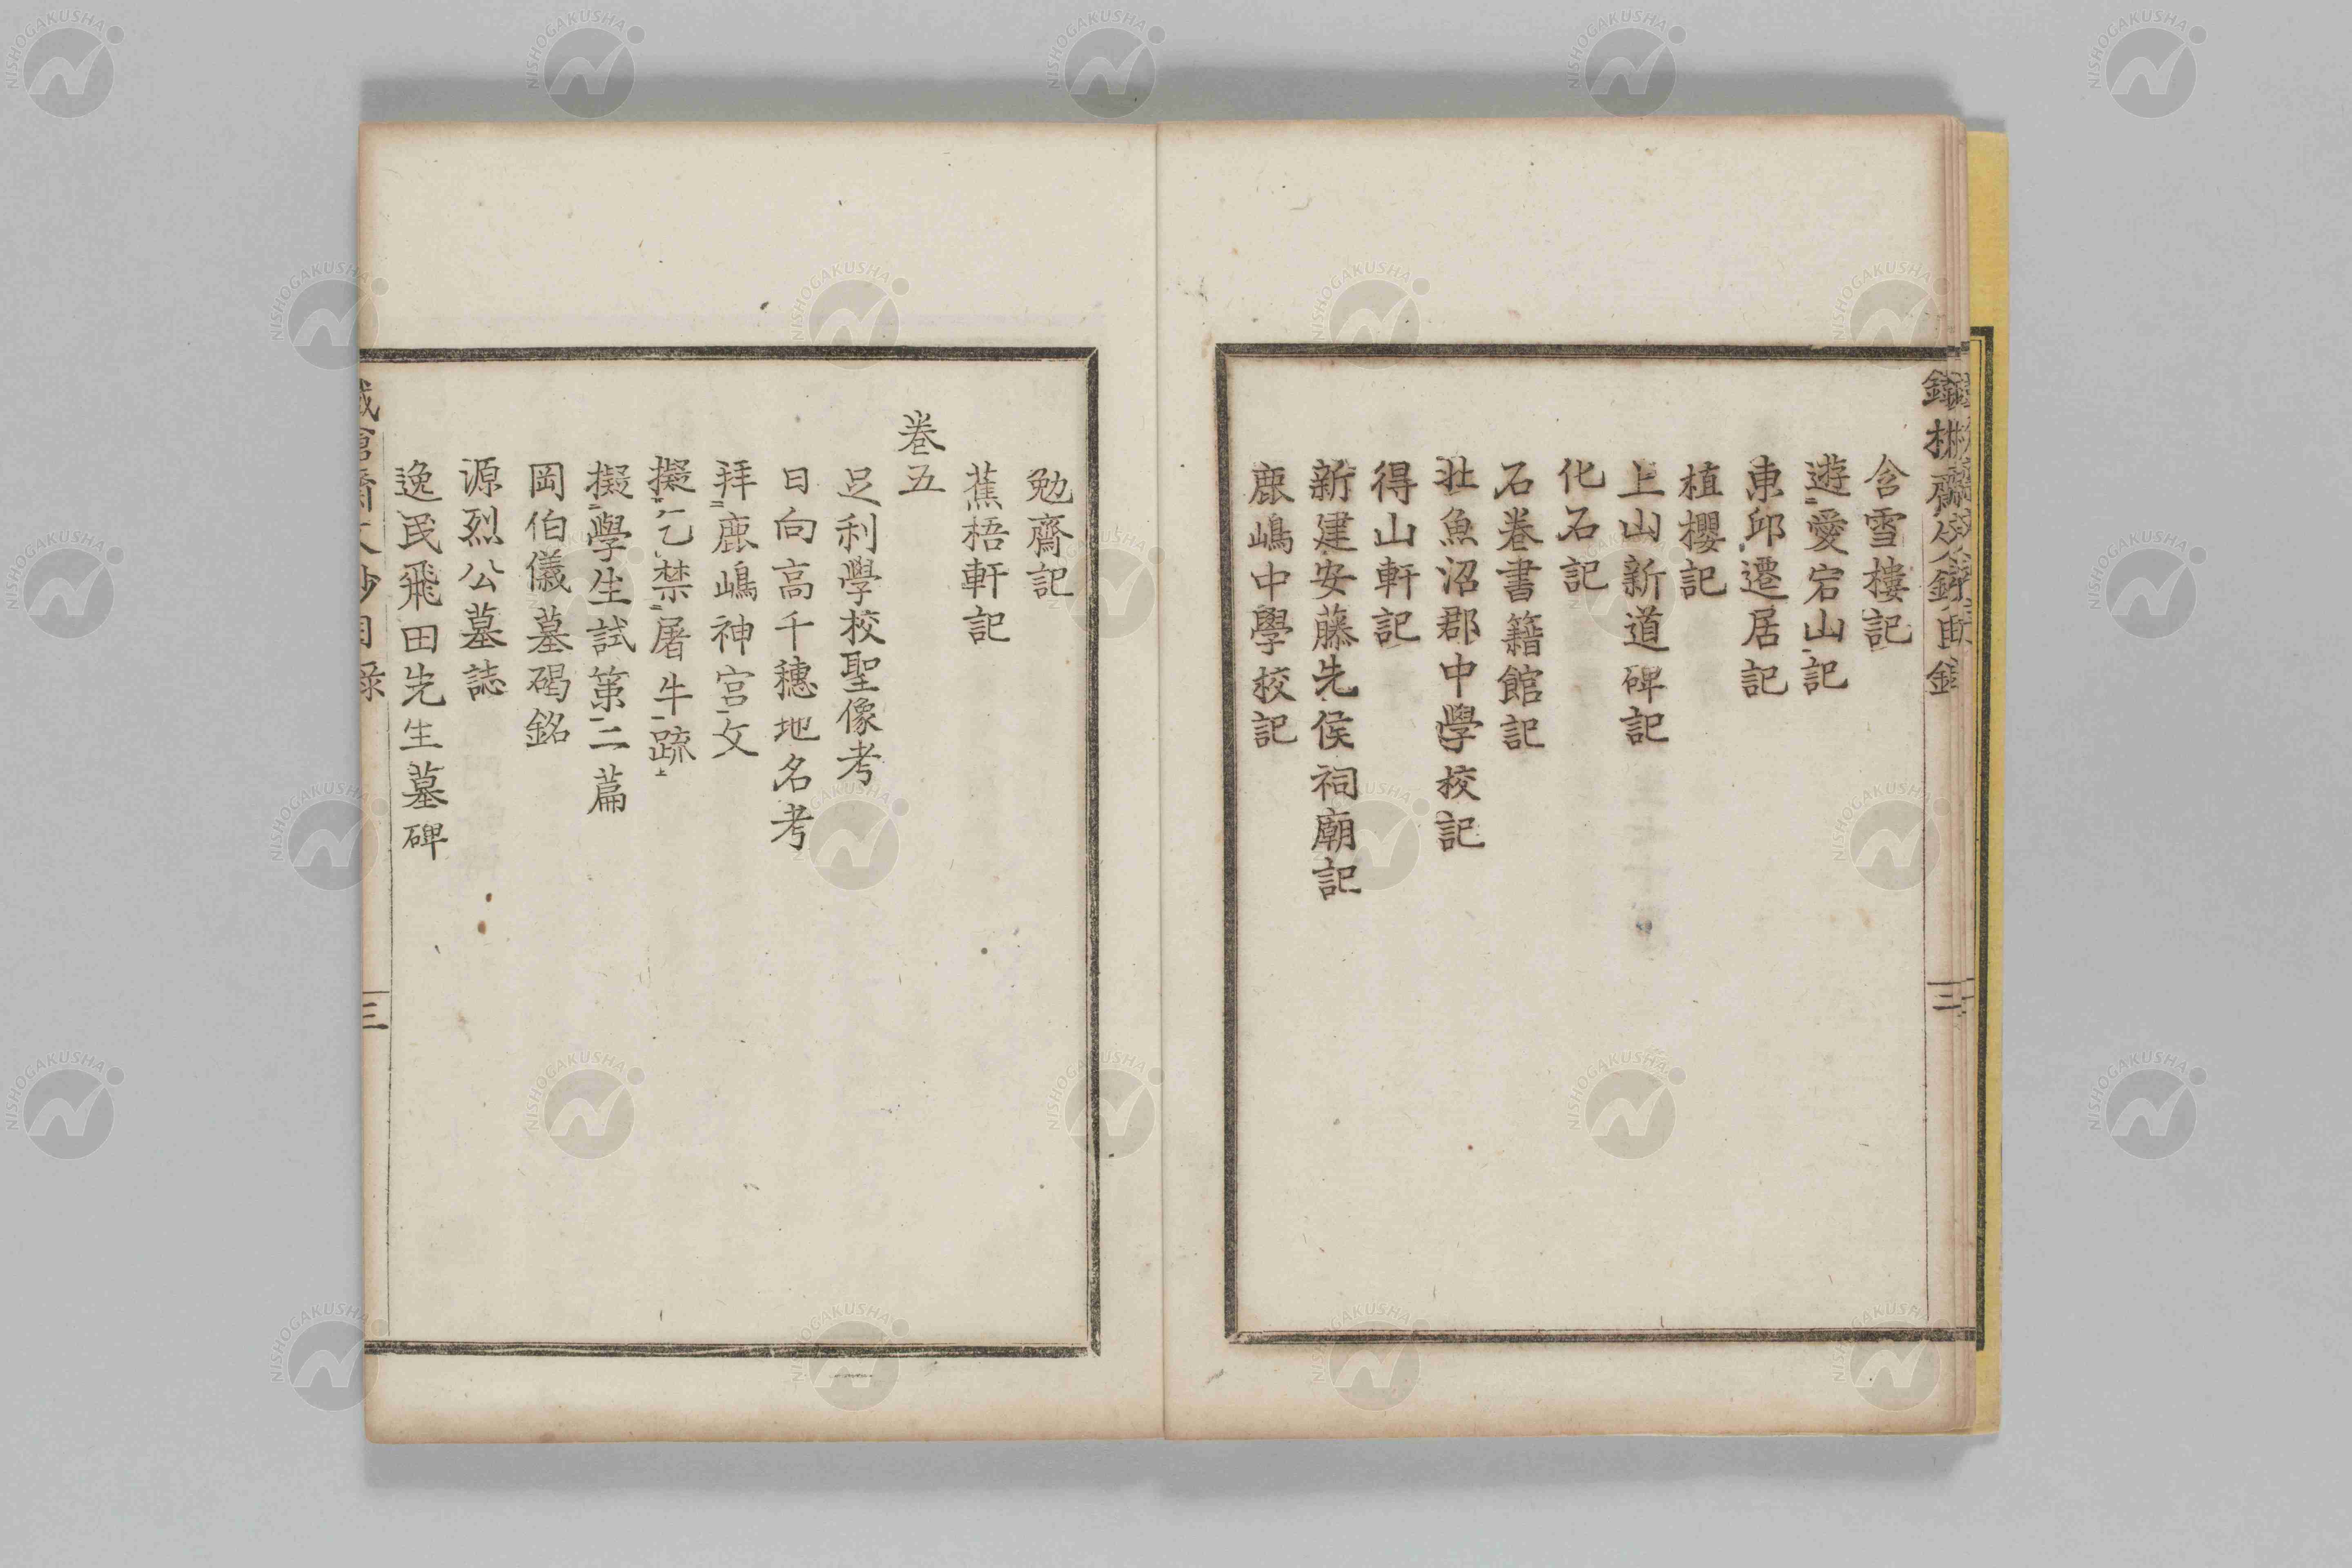 含雪樓記
遊愛宕山記
東邱遷居記
植櫻記
上山新道碑記
化石記
石卷書籍館記
壯魚沼郡中學校記
得山軒記
新建安藤先侯祠廟記
鹿嶋中學校記
勉齋記
蕉梧軒記
卷五
足利學校聖像考
日向高千穗地名考
拜鹿嶋神宮文
擬乞禁屠牛疏
擬學生試策二篇
岡伯儀墓碣銘
源烈公墓誌
逸民飛田先生墓碑
三
NISHOGAKUSHA